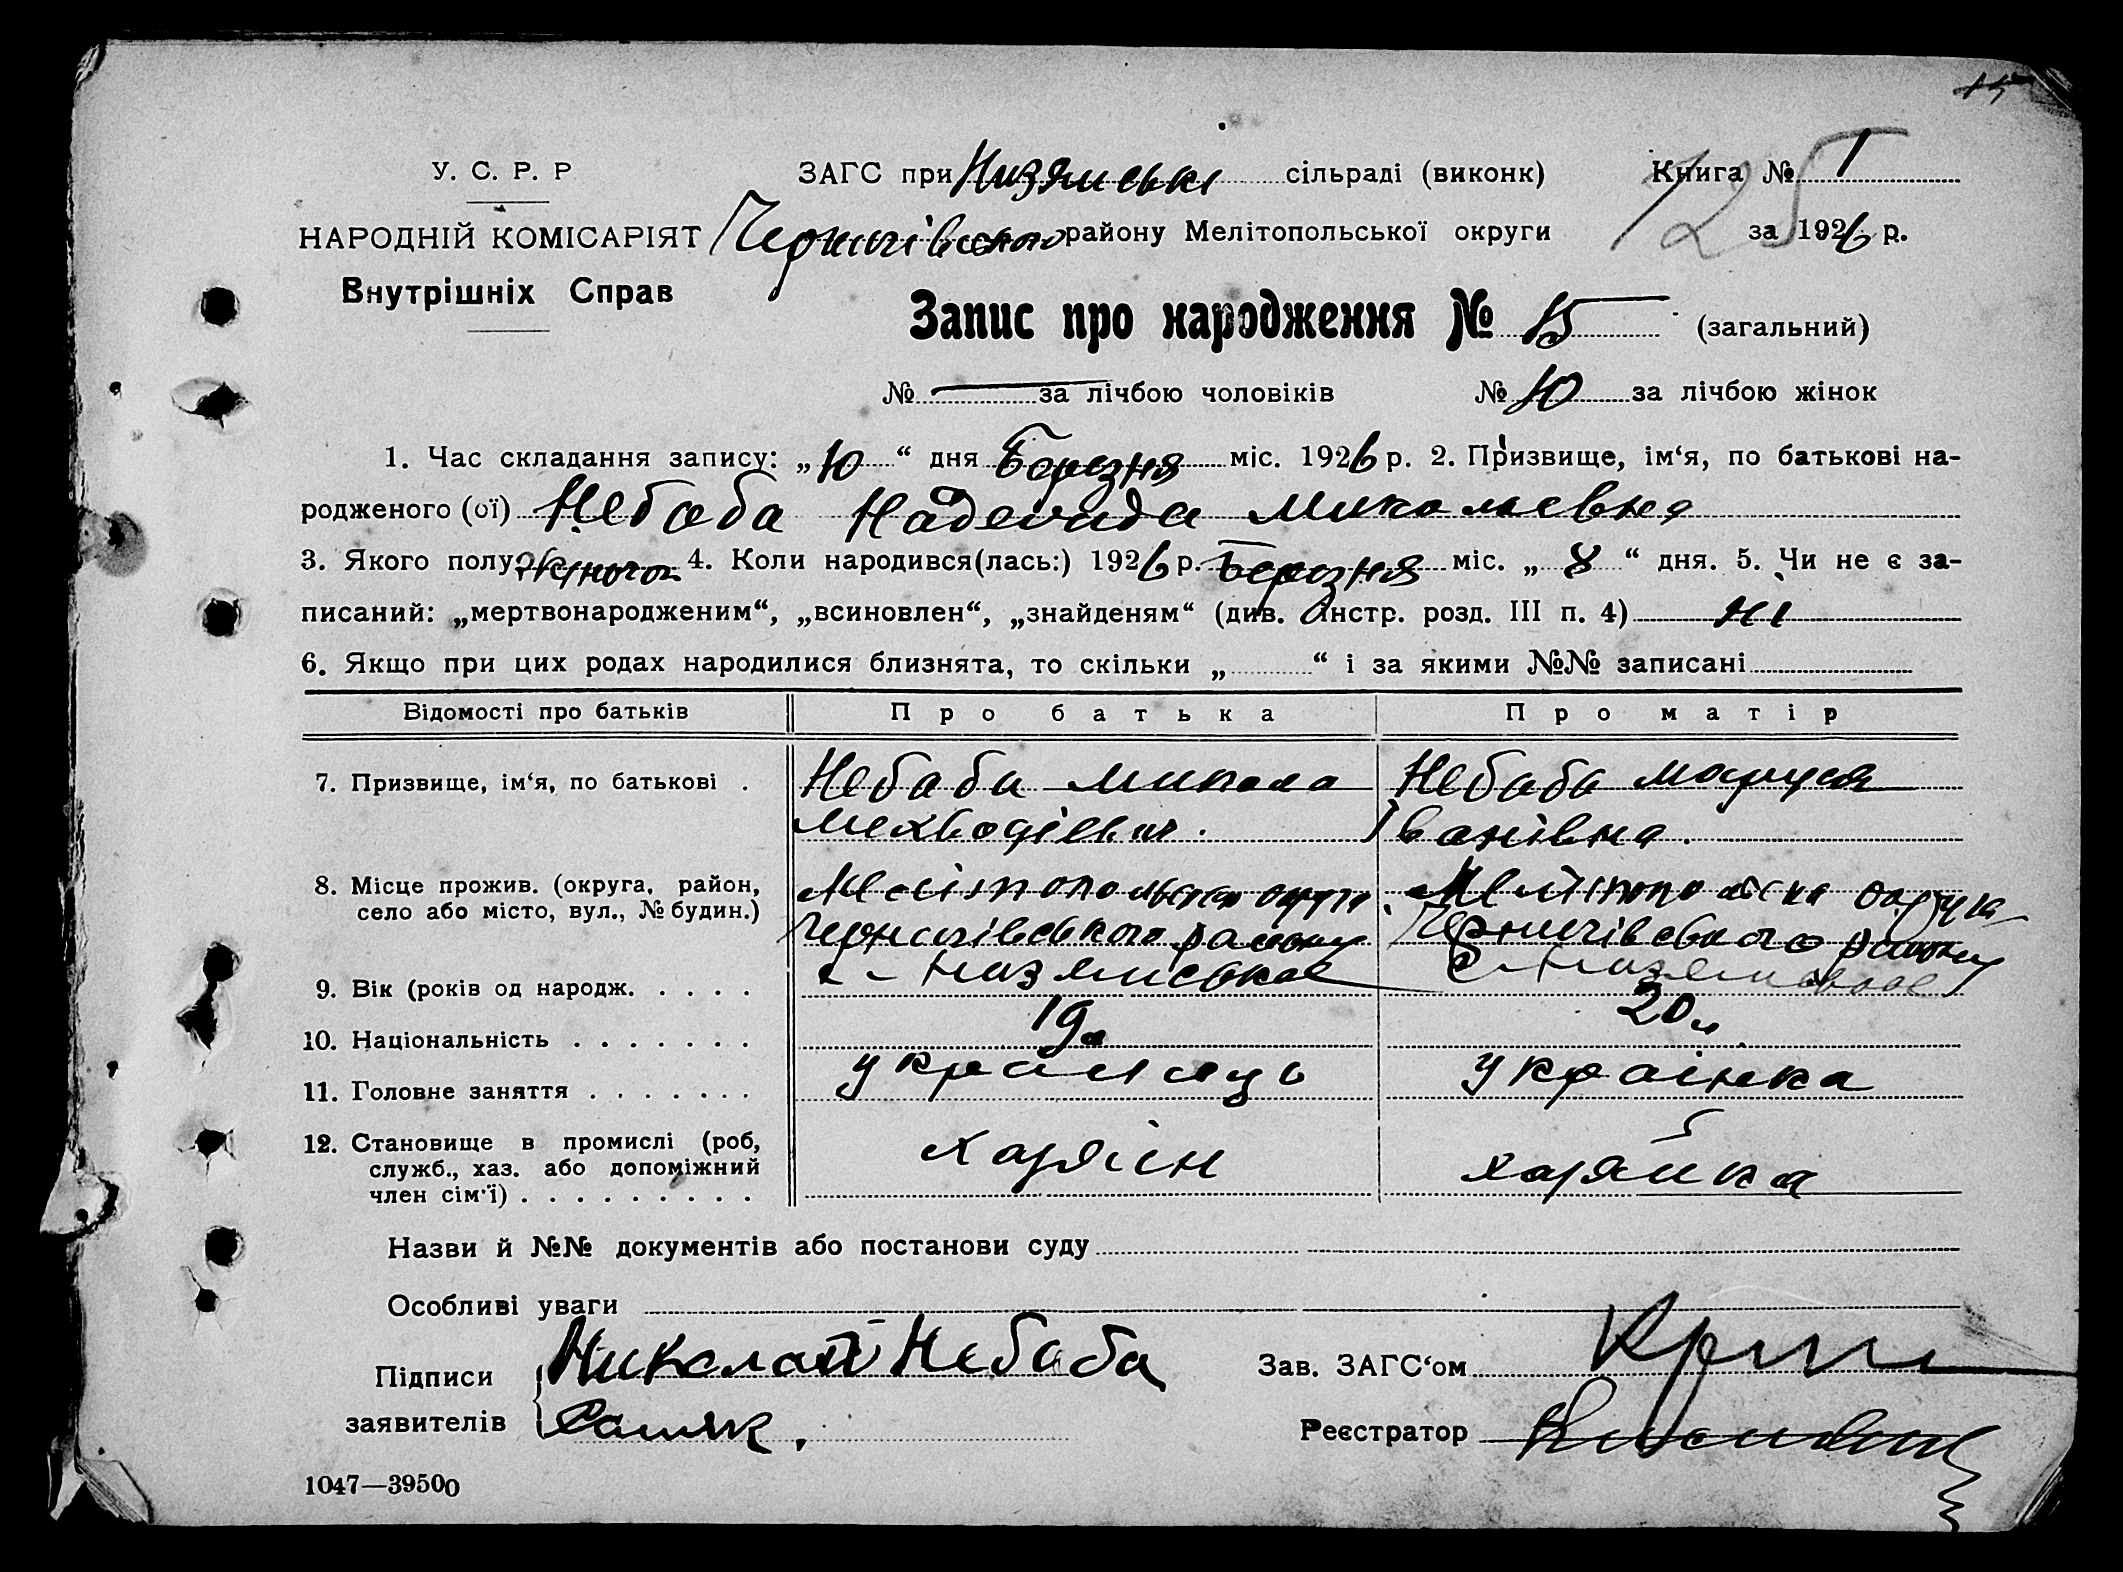 15
У. С. Р. Р
ЗАГС при Низянські сільраді (виконк)
Книга № 1
125
НАРОДНІЙ КОМІСАРІЯТ
Чернигівського району Мелітопольської округи
за 1926 р.
Внутрішніх Справ
Запис про народження № 15 (загальний)
№ — за лічбою чоловіків № 10 за лічбою жінок
1. Час складання запису: „10“ дня Березня міс. 1926 р. 2. Призвище, ім‘я, по батькові на-
родженого (ої) Небаба Надежда Миколаевна
3. Якого полу: жіночої 4. Коли народився(лась:) 1926 р. Березня міс. „8“ дня. 5. Чи не є за-
писаний: „мертвонародженим“, „всиновлен“, „знайденям“ (див. Інстр. розд. III п. 4) ні
6. Якщо при цих родах народилися близнята, то скільки „ “ і за якими №№ записані
Відомості про батьків Про батька Про матір
7. Призвище, ім‘я, по батькові . Небаба Микола Небаба Маруся
Мехводіевич. Іванівна.
8. Місце прожив. (округа, район, Мелітопольська округа Мелітопольска округа
село або місто, вул., № будин.) Чернигівського району Чернигівського району
с-Низянське с-Низянське
9. Вік (років од народж. . . . .
19 л 20 л
10. Національність . . . . . . .
украінець украінка
11. Головне заняття . . . . . . .
12. Становище в промислі (роб, харяін харяйка
служб., хаз. або допоміжний
член сім‘ї) . . . . . . . . .
Назви й №№ документів або постанови суду
Особливі уваги
Підписи Николай Небаба Зав. ЗАГС‘ом
заявителів Реєстратор
1047—39500